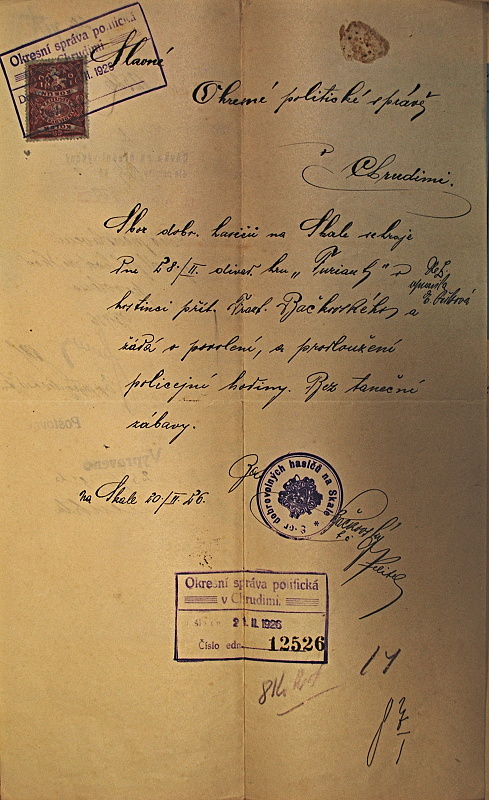 Okresní správa politická
v Chrudimi
II. 1926
Slavné
Okresné politické správě
v Chrudimi.
Sbor dobr. hasičů na Skale sehraje
Dne 28./II. divad. hru „Furianti" v
hostinci přít. Frant. Bačkovského a
žádá o povolení, a prodloužení
policejní hodiny. Bez taneční
zábavy.
na Skale 20/II. 26.
Sbor dobrovolných hasičů na Skale
Okresní správa politická
v Chrudimi.
21. II. 1926
Číslo edn. 12526
8 Kč
14